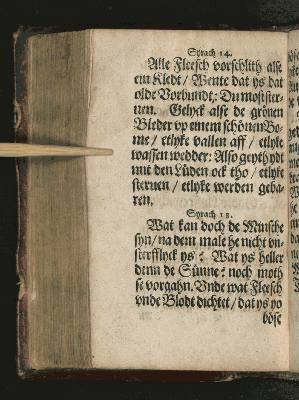 Syrach 14.
Alle Fleesch vorschlith alse
ein Kledt / Wente dat ys dat
olde Vorbundt: Du most ster-
uen. Gelyck alse de grönen
Bleder vp einem schönen Bo-
me / etlyke vallen aff / etlyke
wassen wedder: Also geyth ydt
mit den Lüden ock tho / etlyke
steruen / etlyke werden geba-
ren.
Syrach 18.
Wat kan doch de Minsche
syn / na dem male he nicht vn-
sterfflyck ys? Wat ys heller
denn de Sünne? noch moth
se vorgahn. Vnde wat Fleesch
vnde Blodt dichtet / dat ys yo
böse